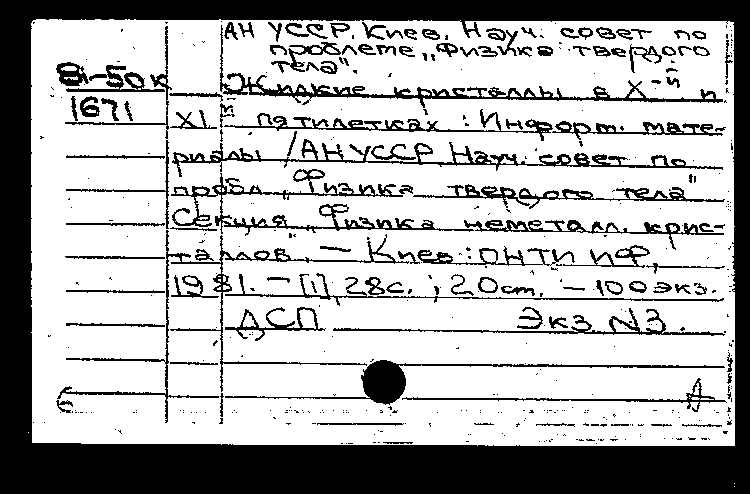 АН УССР. Киев. Науч. совет по
проблеме „Физика твердого
тела".
81-50к Жидкие кристаллы в X-й и
1671 XI й пятилетках : Информ. мате-
риалы / АН УССР Науч. совет по
пробл. „Физика твердого тела"
Секция „Физика неметалл. крис-
таллов". — Киев : ОНТИ ИФ,
1981. — [1], 28с. ; 20см. — 100экз.
ДСП Экз №3.